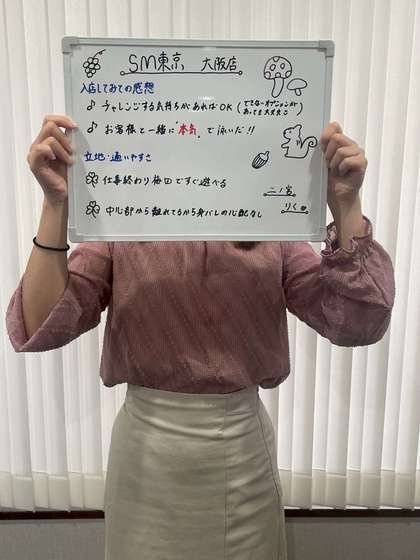 SM東京 大阪店
入店してみての感想
♪ チャレンジする気持ちがあればOK (できないオプションがあっても大丈夫◎)
♪ お客様と一緒に"本気"で泳いだ!!
立地・通いやすさ
仕事終わり梅田ですぐ遊べる
中心部から離れてるから身バレの心配なし
二ノ宮
りく